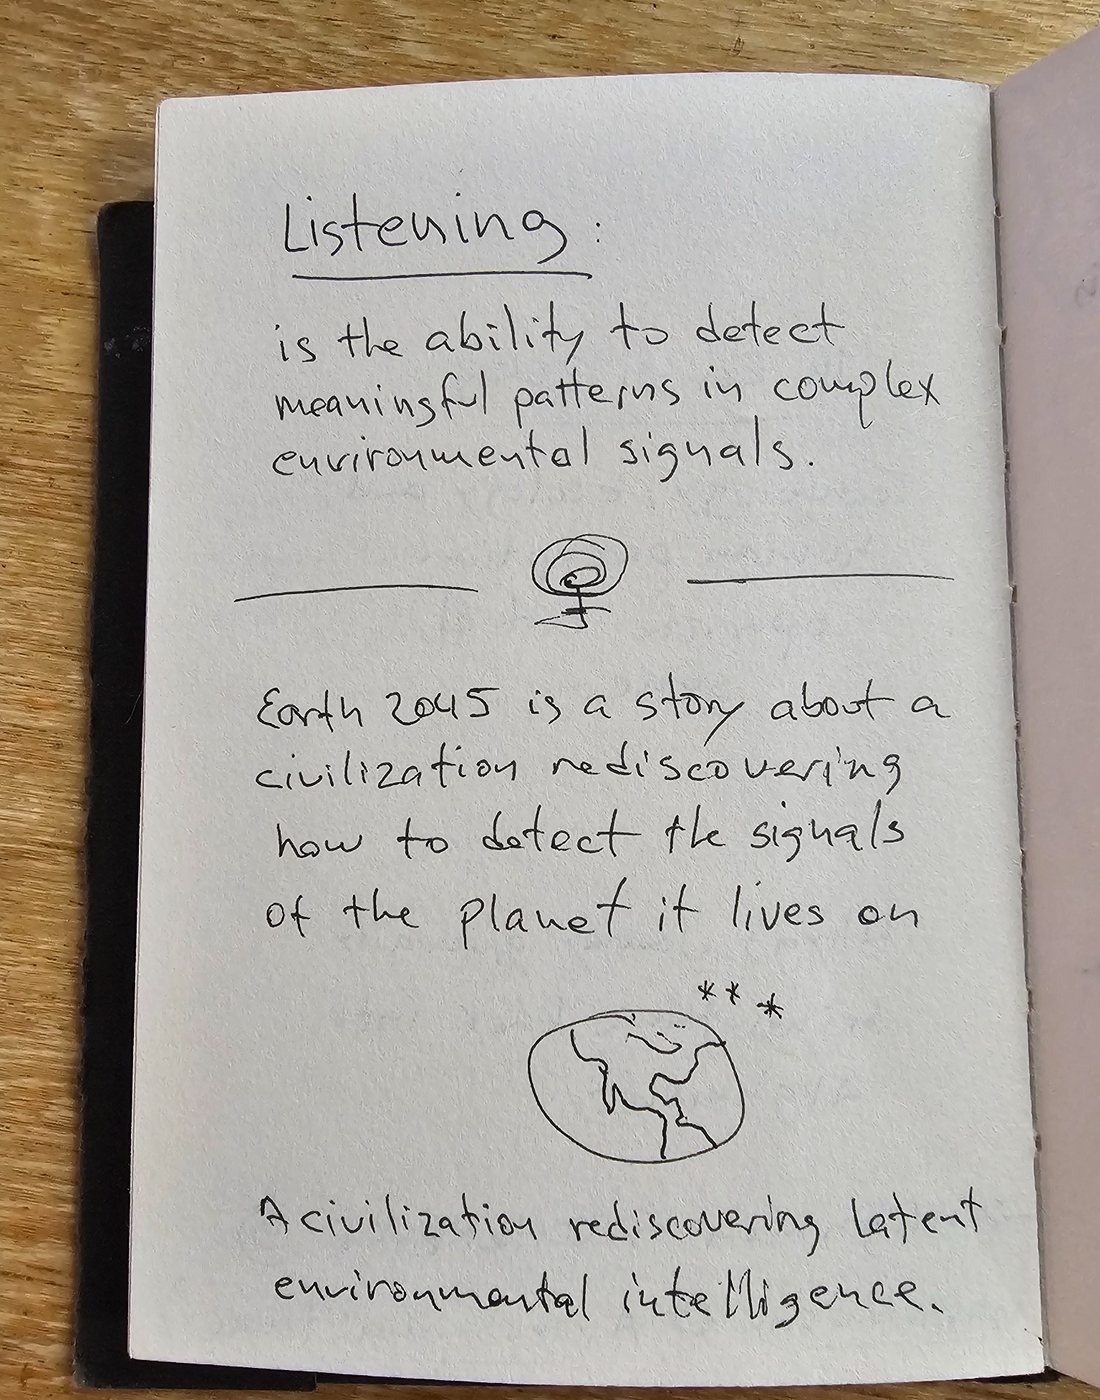 Listening:
is the ability to detect
meaningful patterns in complex
environmental signals.
Earth 2045 is a story about a
civilization rediscovering
how to detect the signals
of the planet it lives on
***
A civilization rediscovering latent
environmental intelligence.